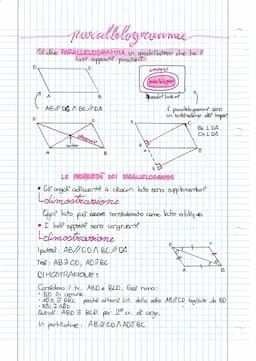 parallelogramma
Si dice PARALLELOGRAMMA un quadrilatero che ha i
lati opposti paralleli
D C
A B
AB//DC ∧ BC//DA
trapezi
quadrilateri
I parallelogrammi sono
un sottoinsieme dei trapezi
D C
A B
D C
A B
LE PROPRIETÀ DEI PARALLELOGRAMMI
• Gli angoli adiacenti a ciascun lato sono supplementari
dimostrazione
Ogni lato può essere considerato come lato obliquo
• I lati opposti sono congruenti
dimostrazione
Ipotesi: AB//CD ∧ BC//DA
Tesi: AB≅CD, AD≅BC
DIMOSTRAZIONE:
Considero i tr. ABD e BCD. Essi hanno:
• BD in comune
perché alterni int. delle rette AB//CD tagliate da BD
Quindi: ABD ≅ BCD per 2° cr. di cong.
In particolare: AB≅CD ∧ AD≅BC